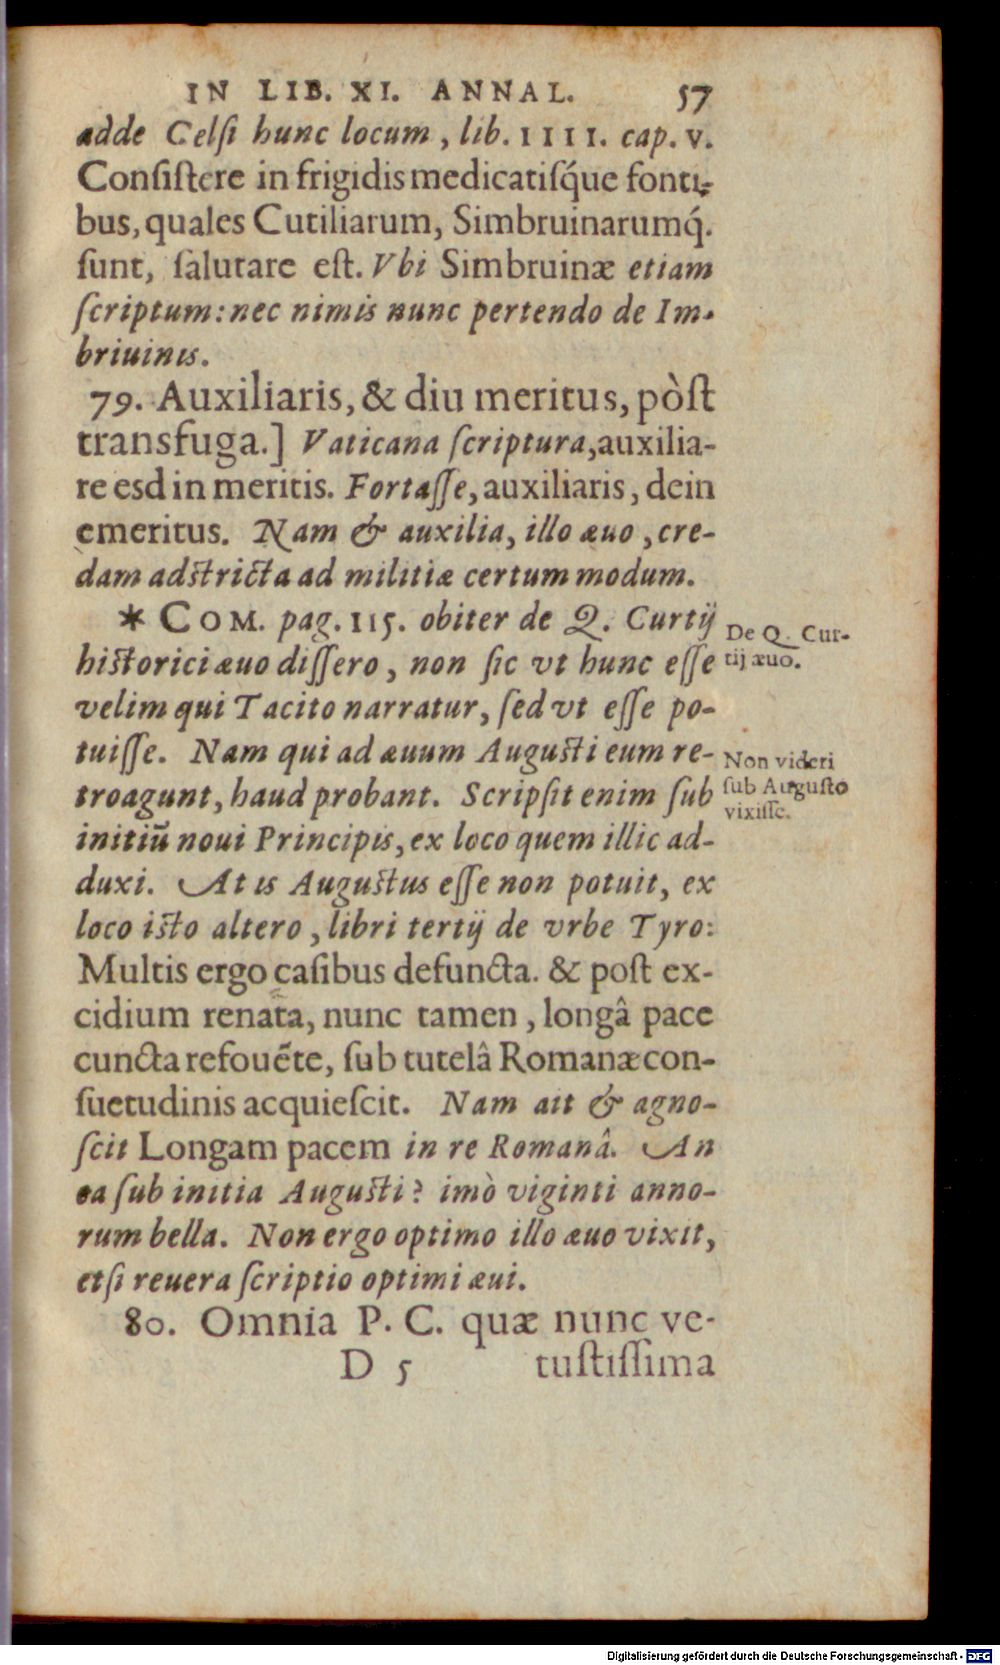 IN LIB. XI. ANNAL. 57
adde Celſi hunc locum, lib. IIII. cap. V.
Conſiſtere in frigidis medicatiſq́ue fonti-
bus, quales Cutiliarum, Simbruinarumq́.
ſunt, ſalutare eſt. Vbi Simbruinæ etiam
ſcriptum: nec nimis nunc pertendo de Im-
briuinis.
79. Auxiliaris, & diu meritus, pòſt
transfuga.] Vaticana ſcriptura, auxilia-
re esd in meritis. Fortaſſe, auxiliaris, dein
emeritus. Nam & auxilia, illo æuo, cre-
dam adſtricta ad militiæ certum modum.
* COM. pag. 115. obiter de Q. Curtij
hiſtorici æuo diſſero, non ſic vt hunc eſſe
velim qui Tacito narratur, ſed vt eſſe po-
tuiſſe. Nam qui ad æuum Auguſti eum re-
troagunt, haud probant. Scripſit enim ſub
initiū noui Principis, ex loco quem illic ad-
duxi. At is Auguſtus eſſe non potuit, ex
loco iſto altero, libri tertij de vrbe Tyro:
Multis ergo caſibus defuncta. & poſt ex-
cidium renata, nunc tamen, longâ pace
cuncta refouēte, ſub tutelâ Romanæ con-
ſuetudinis acquieſcit. Nam ait & agno-
ſcit Longam pacem in re Romanâ. An
ea ſub initia Auguſti? imò viginti anno-
rum bella. Non ergo optimo illo æuo vixit,
etſi reuera ſcriptio optimi æui.
80. Omnia P. C. quæ nunc ve-
D 5 tuſtiſſima
De Q. Cur-
tij æuo.
Non videri
ſub Auguſto
vixiſſe.
Digitalisierung gefördert durch die Deutsche Forschungsgemeinschaft - DFG